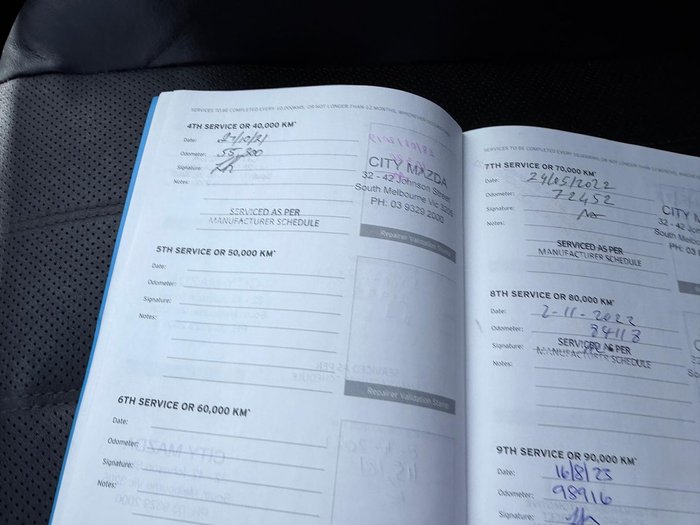 SERVICES TO BE COMPLETED EVERY 10,000KMS, OR NOT LONGER THAN 12 MONTHS, WHICHEVER
4TH SERVICE OR 40,000 KM*
Date: 27/10/21
Odometer: 55,300
Signature:
Notes:
SERVICED AS PER
MANUFACTURER SCHEDULE
CITY MAZDA
32 - 42 Johnson Street
South Melbourne Vic 3205
PH: 03 9329 2000
Repairer Validation Stamp
5TH SERVICE OR 50,000 KM*
Date:
Odometer:
Signature:
Notes:
Repairer Validation Stamp
6TH SERVICE OR 60,000 KM*
Date:
Odometer:
Signature:
Notes:
SERVICES TO BE COMPLETED EVERY 10,000KMS, OR NOT LONGER THAN 12 MONTHS, WHICHEVER
7TH SERVICE OR 70,000 KM*
Date: 24/05/2022
Odometer: 72452
Signature:
Notes:
SERVICED AS PER
MANUFACTURER SCHEDULE
CITY
32 - 42 Joh
South Melbo
PH:
8TH SERVICE OR 80,000 KM*
Date: 2-11-2022
Odometer: 84118
Signature:
Notes:
SERVICED AS PER
MANUFACTURER SCHEDULE
9TH SERVICE OR 90,000 KM*
Date: 16/8/23
Odometer: 98916
Signature: